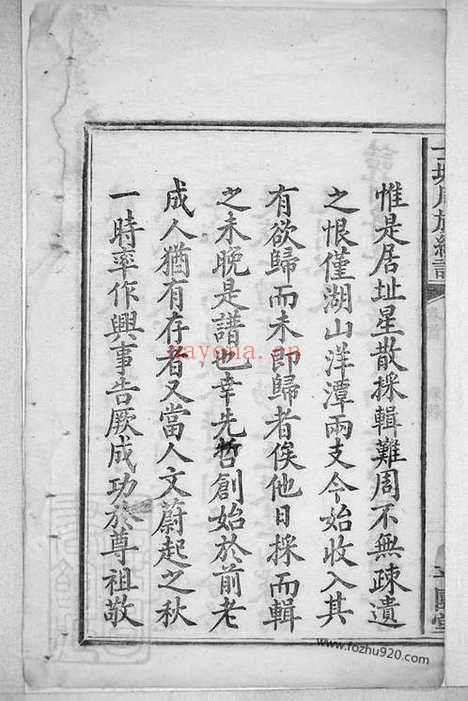 惟是居址星散採輯難周不無疎遺
之恨僅湖山洋潭兩支今始收入其
有欲歸而未即歸者俟他日採而輯
之未晩是譜也幸先哲創始於前老
成人猶有存者又當人文蔚起之秋
一時率作興事告厥成功於尊祖敬
nayona.cn
www.fozhu920.com